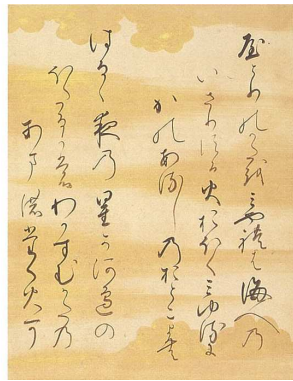 屋とりのかたをみや禮は海人乃
いさりする火おほくみゆるに
かのあるし乃おとこよむ
はるゝ夜乃星か河邊の
ほたるかもわかすむかた乃
あまのたく火か